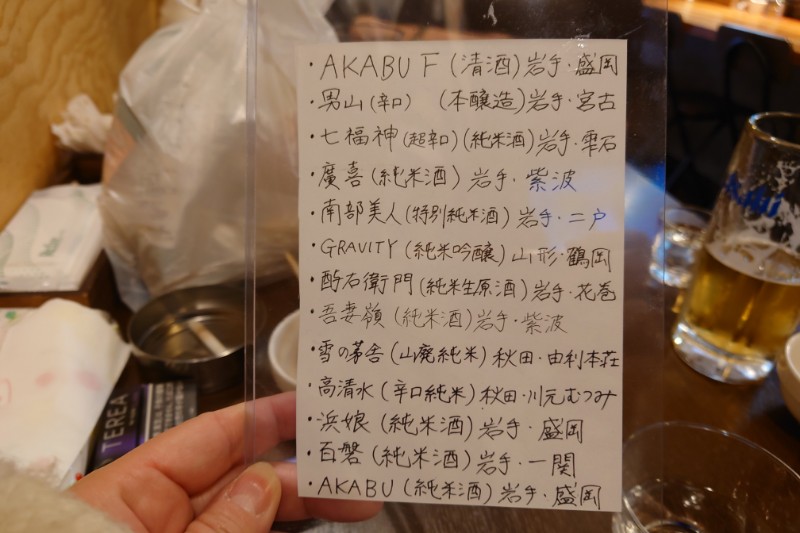 ・AKABU F (清酒) 岩手・盛岡
・男山 (辛口) (本醸造) 岩手・宮古
・七福神 (超辛口) (純米酒) 岩手・雫石
・廣喜 (純米酒) 岩手・紫波
・南部美人 (特別純米酒) 岩手・二戸
・GRAVITY (純米吟醸) 山形・鶴岡
・酉与右衛門 (純米生原酒) 岩手・花巻
・吾妻嶺 (純米酒) 岩手・紫波
・雪の茅舎 (山廃純米) 秋田・由利本荘
・高清水 (辛口純米) 秋田・川元むつみ
・浜娘 (純米酒) 岩手・盛岡
・百磐 (純米酒) 岩手・一関
・AKABU (純米酒) 岩手・盛岡
TEREA